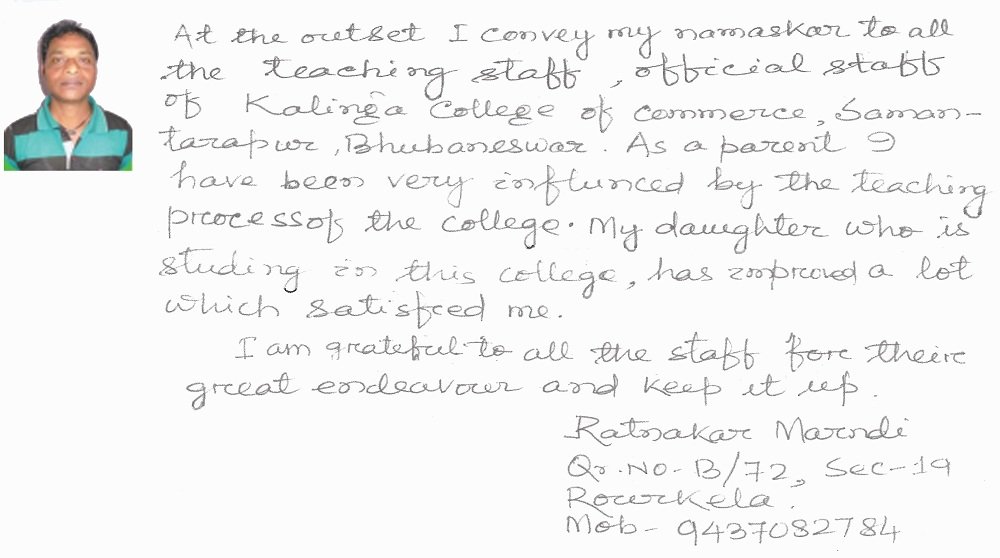 At the outset I convey my namaskar to all
the teaching staff, official staff
of Kalinga College of commerce, Saman-
tarapur, Bhubaneswar. As a parent I
have been very influnced by the teaching
processof the college. My daughter who is
studing in this college, has improved a lot
which satisfied me.
I am grateful to all the staff for their
great endeavour and keep it up.
Ratnakar Marndi
Qr. No- B/72, Sec-19
Rourkela.
Mob- 9437082784